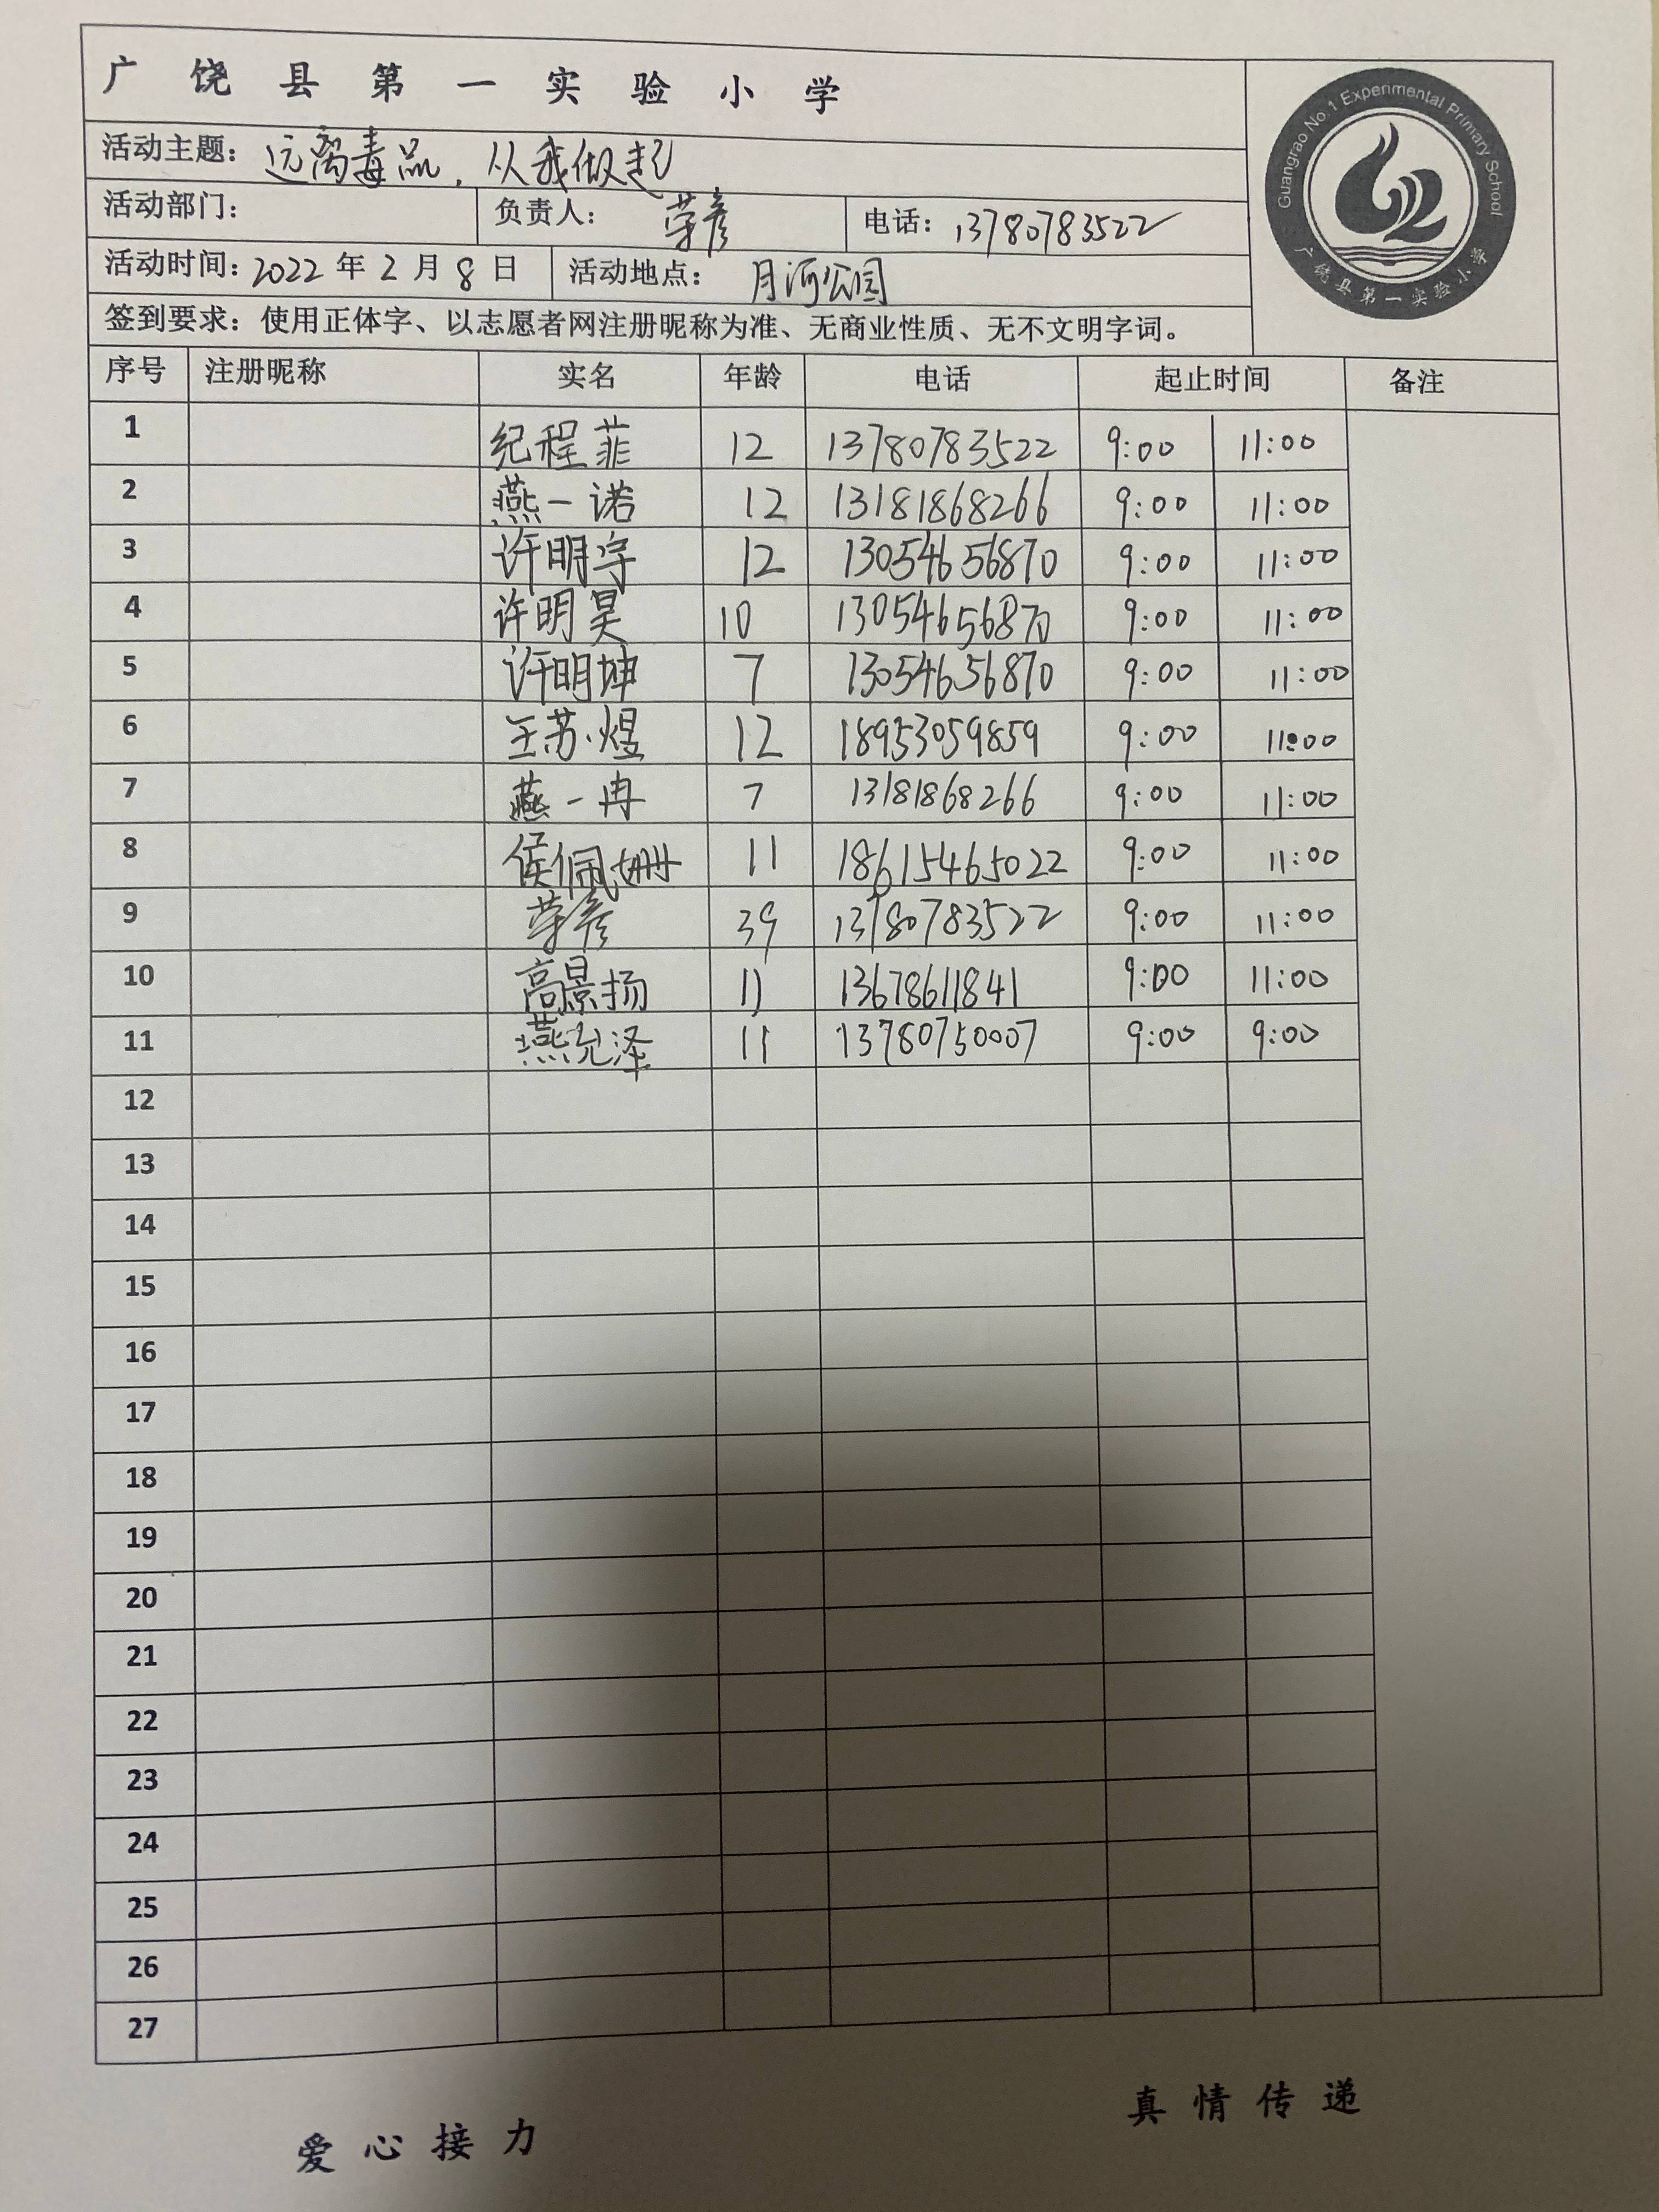 广饶县第一实验小学
Guangrao No.1 Experimental Primary School
广饶县第一实验小学
活动主题：远离毒品，从我做起
活动部门： 负责人：荣彦 电话：13780783522
活动时间：2022年2月8日 活动地点：月河公园
签到要求：使用正体字、以志愿者网注册昵称为准、无商业性质、无不文明字词。
序号 注册昵称 实名 年龄 电话 起止时间 备注
1 纪程菲 12 13780783522 9:00 11:00
2 燕一诺 12 13181868266 9:00 11:00
3 许明宇 12 13054656870 9:00 11:00
4 许明昊 10 13054656870 9:00 11:00
5 许明坤 7 13054656870 9:00 11:00
6 王苏煜 12 18953059859 9:00 11:00
7 燕一冉 7 13181868266 9:00 11:00
8 侯佩姗 11 18615465022 9:00 11:00
9 荣彦 39 13780783522 9:00 11:00
10 高景扬 11 13678611841 9:00 11:00
11 燕允泽 11 13780750007 9:00 9:00
12
13
14
15
16
17
18
19
20
21
22
23
24
25
26
27
爱心接力 真情传递